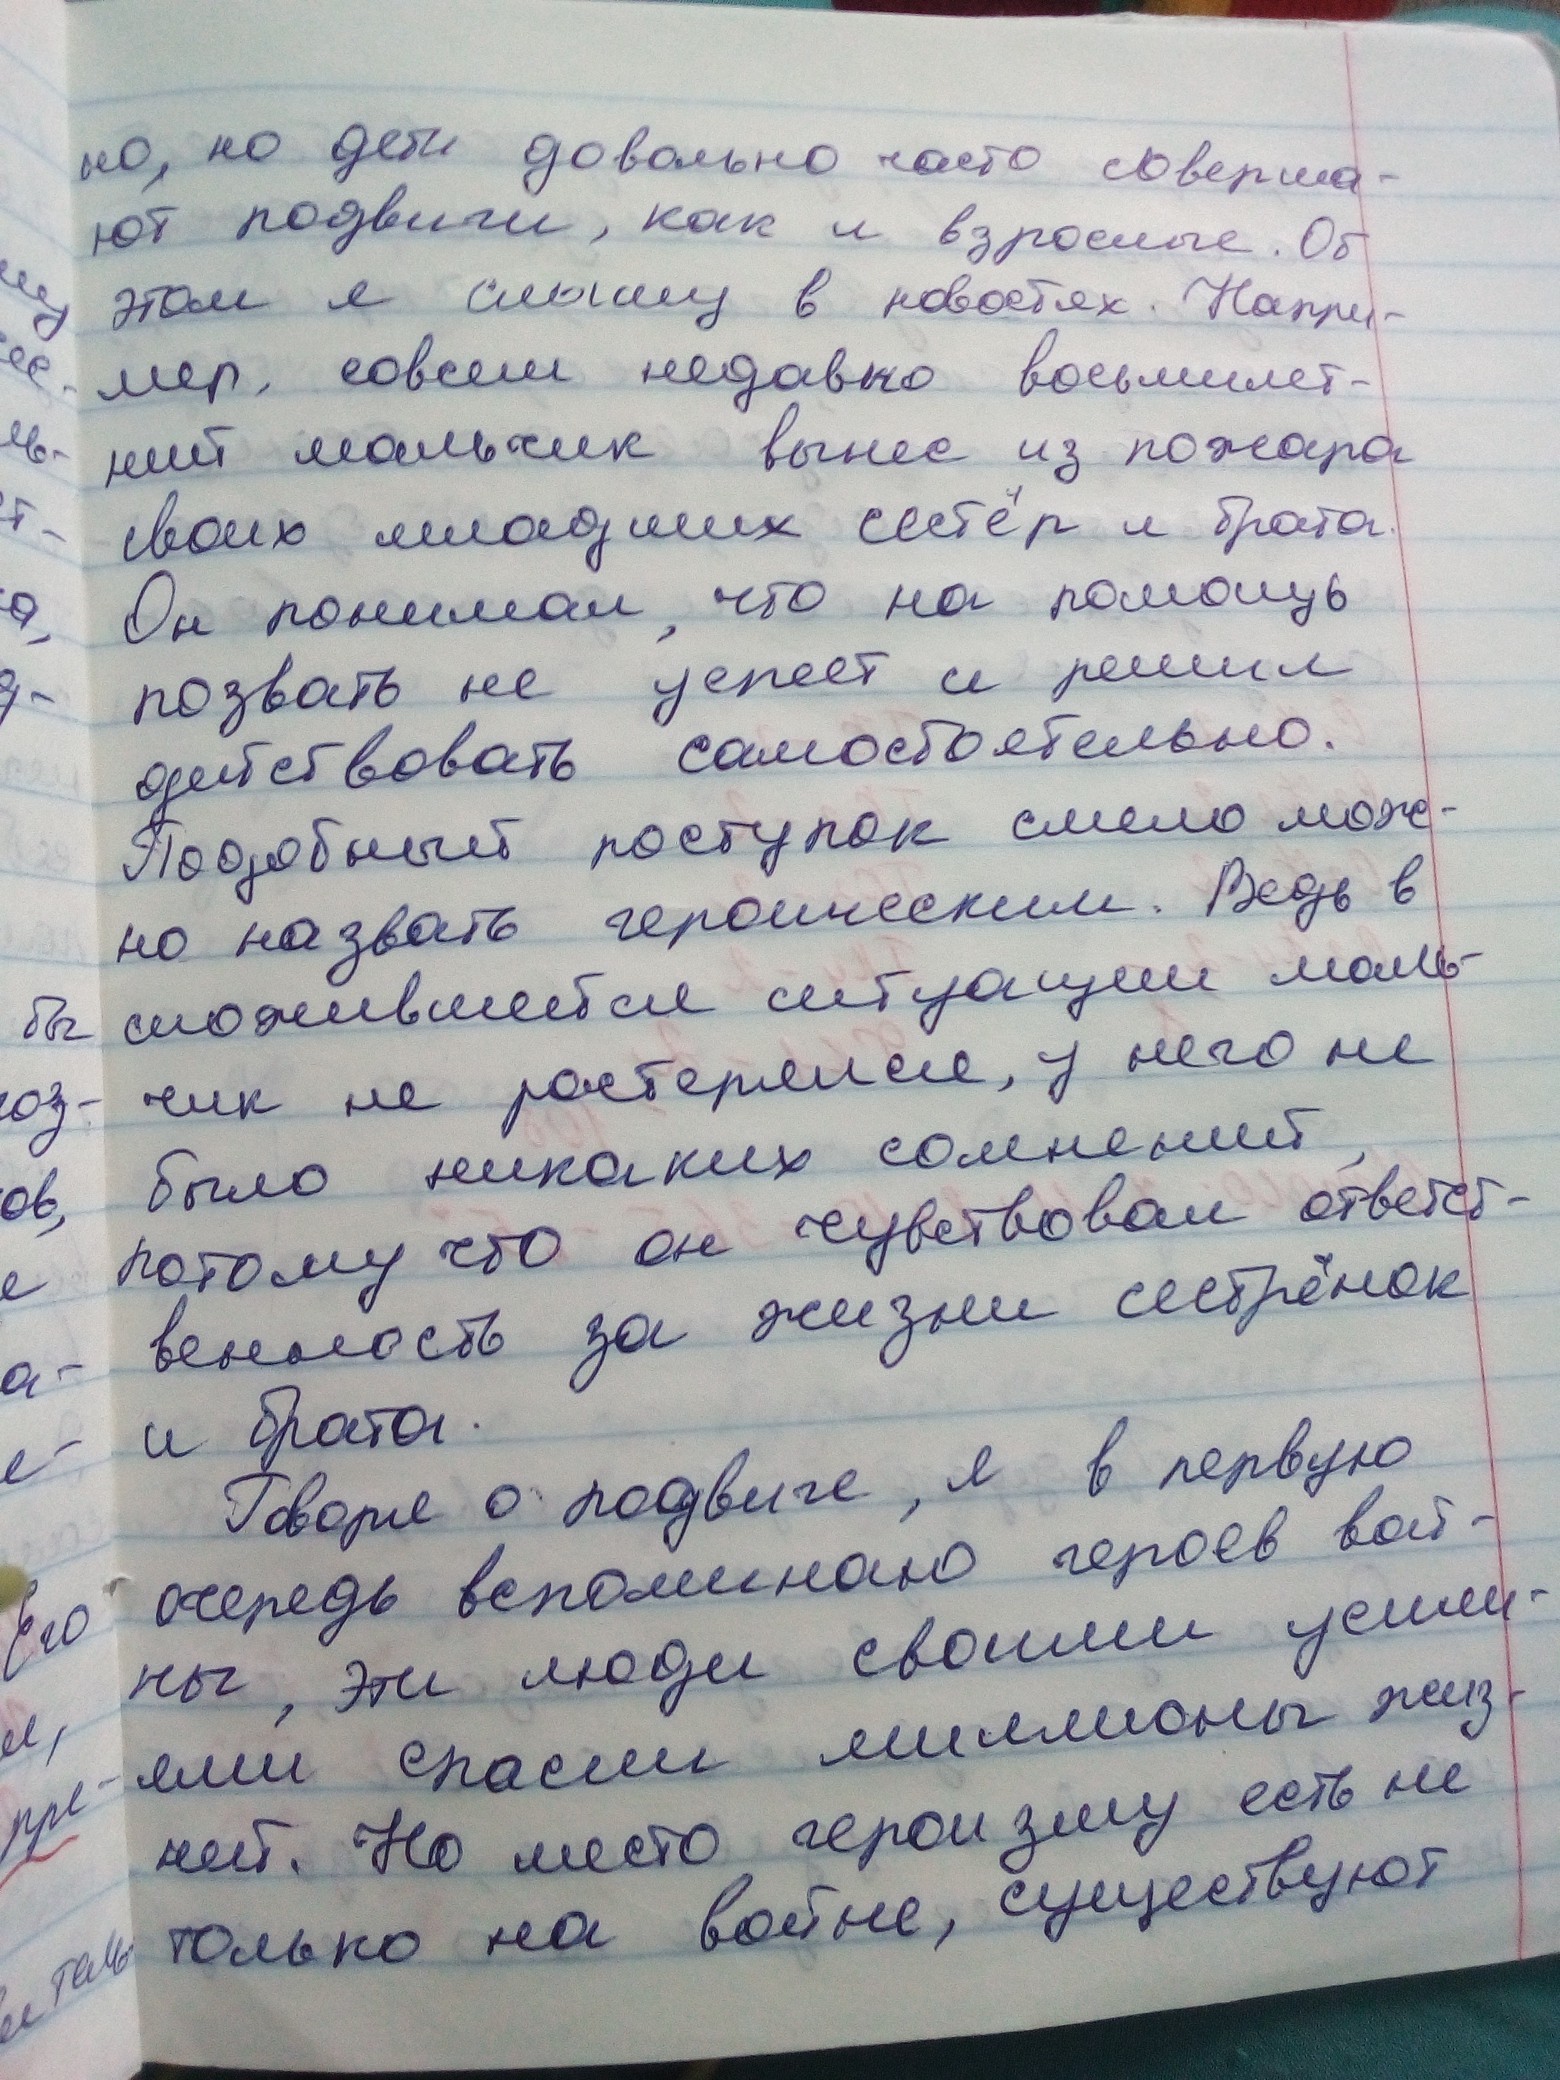 но, но дети довольно часто соверша-
ют подвиги, как и взрослые. Об
этом я слышу в новостях. Напри-
мер, совсем недавно восьмилет-
ний мальчик вынес из пожара
своих младших сестёр и брата.
Он понимал, что на помощь
позвать не успеет и решил
действовать самостоятельно.
Подобный поступок смело мож-
но назвать героическим. Ведь в
сложившейся ситуации маль-
чик не растерялся, у него не
было никаких сомнений,
потому что он чувствовал ответст-
венность за жизни сестрёнок
и брата.
Говоря о подвиге, я в первую
очередь вспоминаю героев вой-
ны, эти люди своими усили-
ями спасли миллионы жиз-
ней. Но место героизму есть не
только на войне, существуют